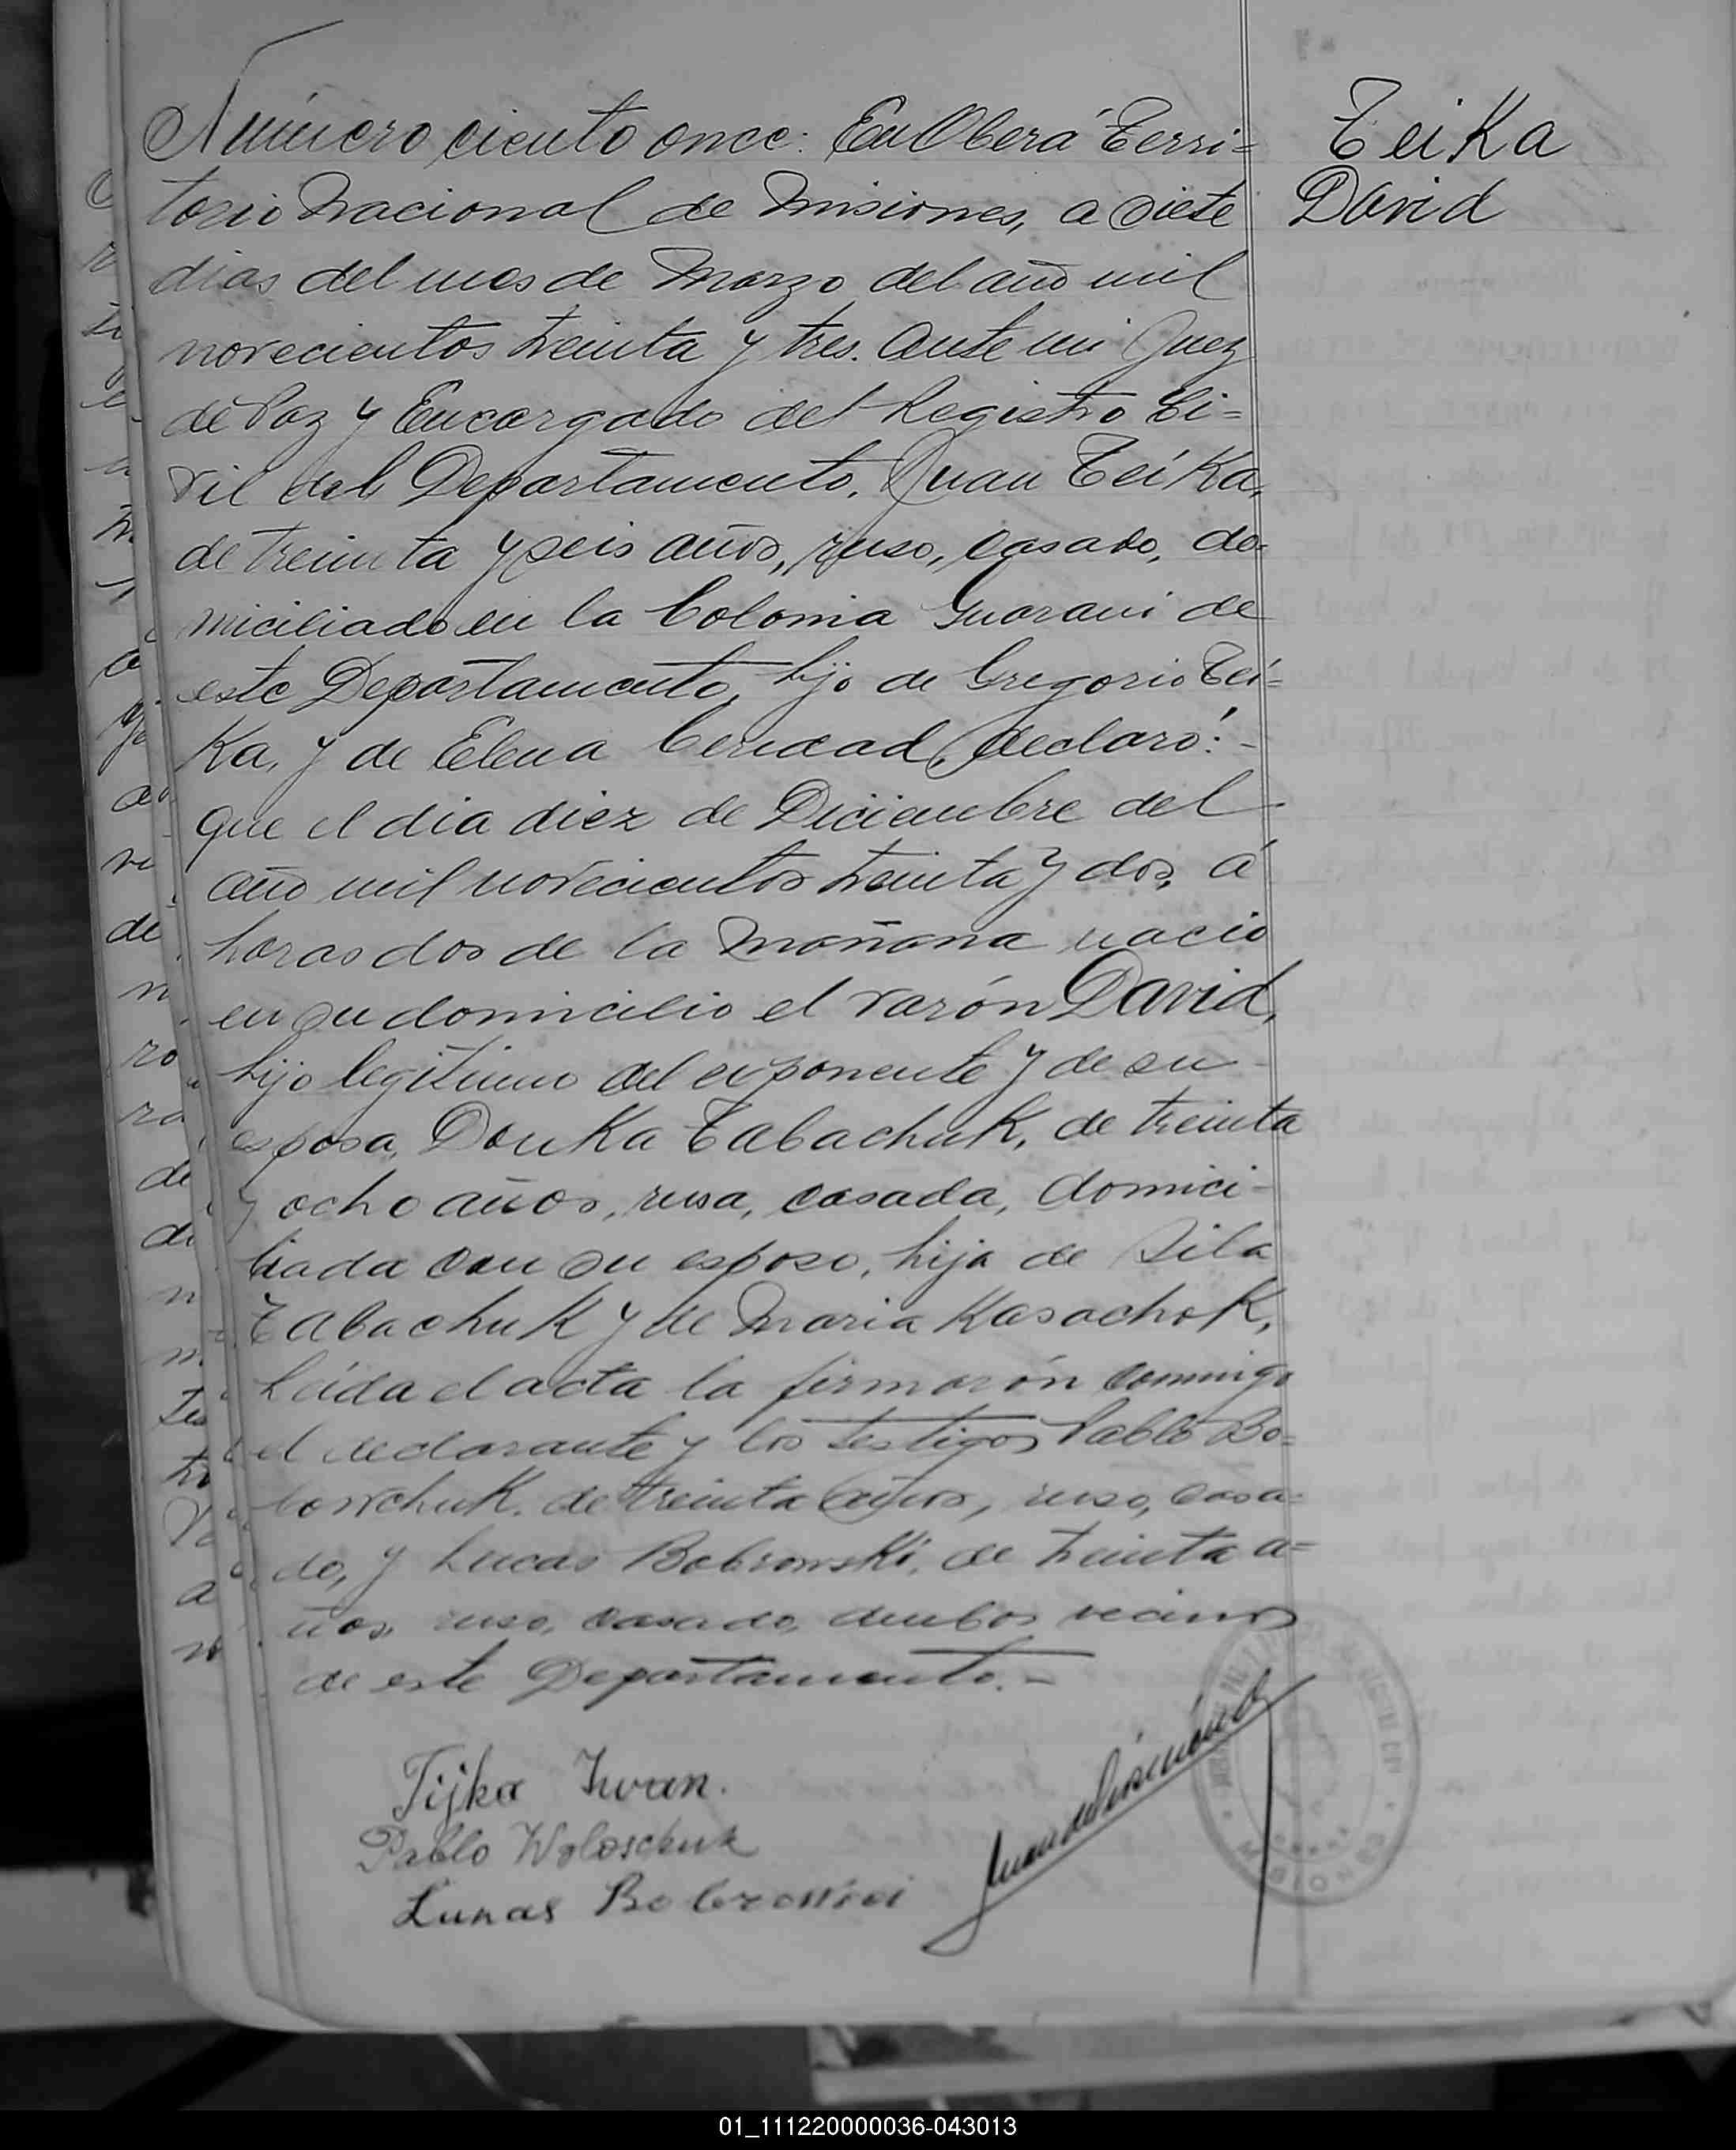 Número ciento once: En Oberá Terri=
torio Nacional de Misiones, a siete
dias del mes de Marzo del año mil
novecientos treinta y tres. Ante mi Juez
de Paz y Encargado del Registro Ci=
vil del Departamento, Juan Teika,
de treinta y seis años, ruso, casado, do=
miciliado en la Colonia Guarani de
este Departamento, hijo de Gregorio Tei=
Ka, y de Elena declaró:-
que el dia diez de Diciembre del
año mil novecientos treinta y dos, á
horas dos de la mañana nació
en su domicilio el varón David,
hijo legitimo del exponente y de su
esposa, Donka Tabachuk, de treinta
y ocho años, rusa, casada, domici-
liada con su esposo, hija de Sila
Tabachuk y de Maria Kasachok,
Leida el acta la firmarón conmigo
el declarante y los testigos Pablo
de treinta años, ruso, casa=
do, y Lucas Bobrowski, de treinta a=
ños, ruso, casado, ambos vecinos
de este Departamento.-
Teika
David
Tijka Iwan.
Pablo Woloschuk
Lukas
MISIONES
01_111220000036-043013